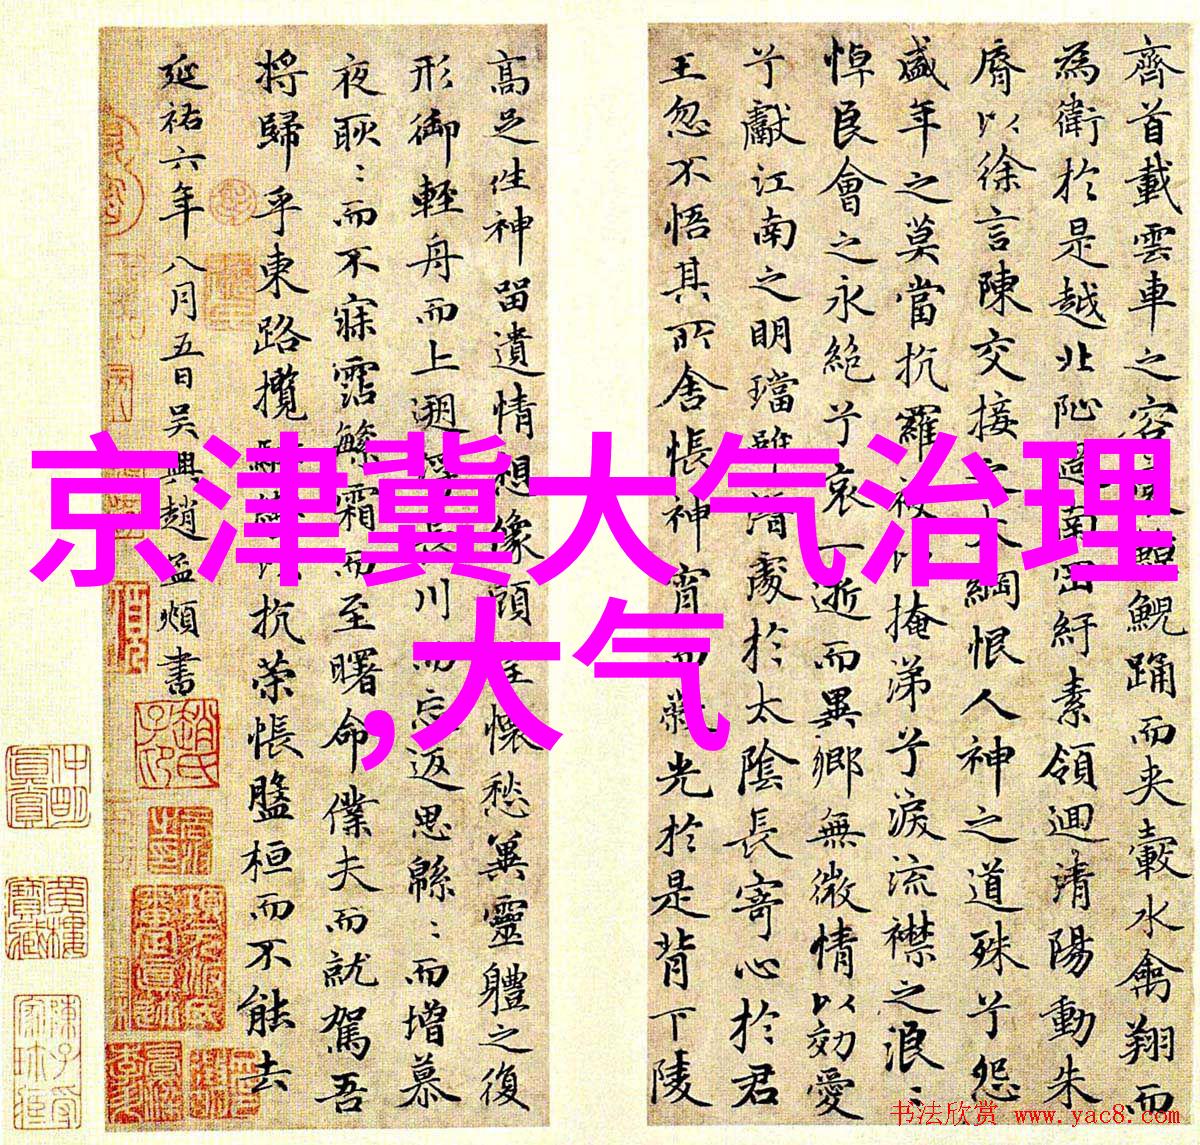 京津冀大气治理
,大气
齊首載雲車之容鯢踊而夾轂水禽翔而
為衛於是越北沚過南岡紆素領迴清陽動朱
脣以徐言陳交接之大綱恨人神之道殊兮怨
盛年之莫當抗羅袂以掩涕兮淚流襟之浪〻
悼良會之永絕兮哀一逝而異鄉無微情以効愛
兮獻江南之明璫雖潛處於太陰長寄心於君
王忽不悟其所舍悵神宵而蔽光於是背下陵
高足往神留遺情想像顧望懷愁冀靈體之復
形御輕舟而上遡浮長川而忘返思緜〻而增慕
夜耿〻而不寐霑繁霜而至曙命僕夫而就駕吾
將歸乎東路攬抗策悵盤桓而不能去
延祐六年八月五日吳興趙孟頫書
书法欣赏 www.yac8.com